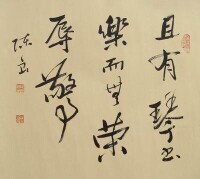 且有琴書
樂而無榮
辱驚